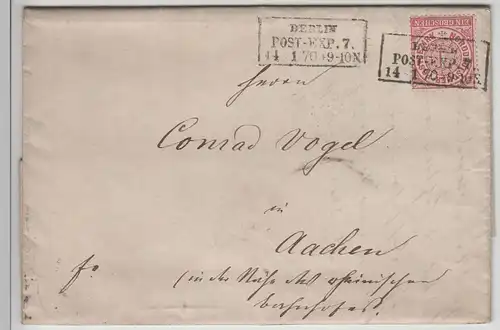 BERLIN
POST-EXP. 7.
14 1 70 9-10N.
POST-EXP. 7.
14 1 70 9-10N.
Herrn
Conrad Vogel
in
Aachen
fr.
(in der Nähe des rheinischen
Bahnhofes.